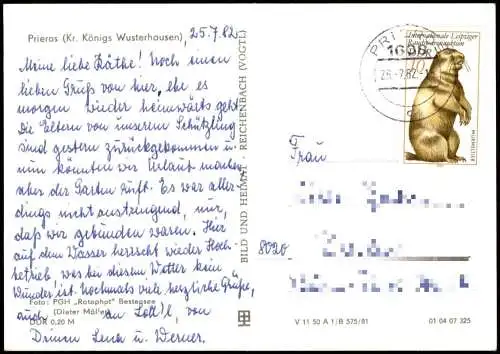 Prieros (Kr. Königs Wusterhausen), 25.7.82
Meine liebe Käthe! Noch einen
lieben Gruß von hier, ehe es
morgen wieder heimwärts geht.
Die Eltern von unserem Schützling
sind gestern zurückgekommen u.
nun könnten wir Urlaub machen,
aber der Garten ruft. Es war aller-
dings nicht anstrengend, nur,
daß wir gebunden waren. Hier
auf dem Wasser herrscht wieder Hoch-
betrieb, was bei diesem Wetter kein
Wunder ist. Nochmals viele herzliche Grüße,
auch an Lottl, von
Deinen Lena u. Werner.
Foto: PGH „Rotophot" Bestensee
(Dieter Möller)
DDR 0,20 M
BILD UND HEIMAT · REICHENBACH (VOGTL)
Internationale Leipziger
Rauchwarenauktion
DDR
10
MURMELTIER
PRIEROS
1606
26.-7.82
Frau
8020
V 11 50 A 1/B 575/81
01 04 07 325